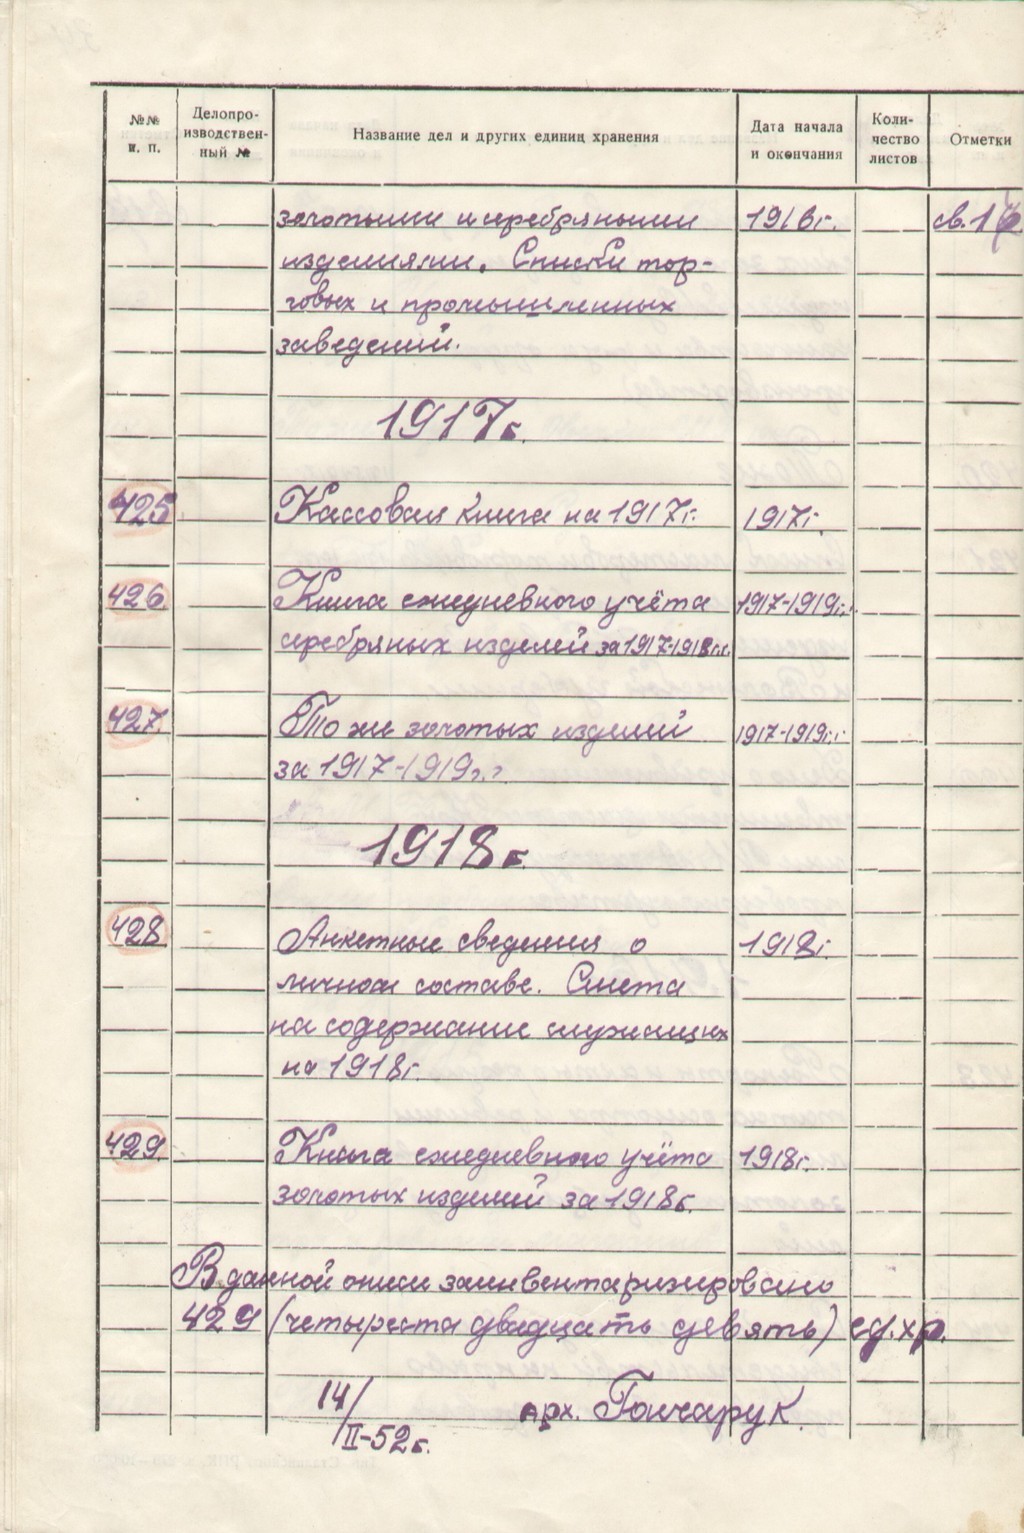 №№ п. п. Делопроизводственный № Название дел и других единиц хранения Дата начала и окончания Количество листов Отметки
золотыми и серебряными 1916г. св.16
изделиями. Списки тор-
говых и промышленных
заведений.
1917г.
425 Кассовая книга на 1917г. 1917г.
426. Книга ежедневного учёта 1917-1919г.г.
серебряных изделий за 1917-1918г.г.
427. То же золотых изделий 1917-1919г.г.
за 1917-1919г.г.
1918г.
428. Анкетные сведения о 1918г.
личном составе. Смета
на содержание служащих
на 1918г.
429. Книга ежедневного учёта 1918г.
золотых изделий за 1918г.
В данной описи заинвентаризировано
429 (четыреста двадцать девять) ед.хр.
14/II-52г. арх. Гончарук.